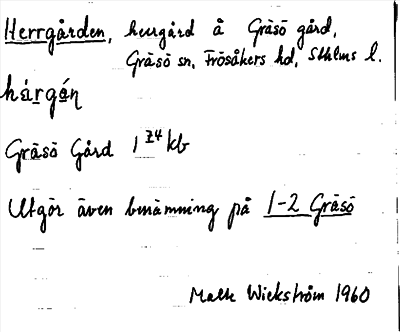 Herrgården, herrgård å Gräsö gård,
Gräsö sn, Frösåkers hd, Sthlms l.
hárgán
Gräsö Gård 1 24 kb
Utgör även benämning på 1-2 Gräsö
Mats Wickström 1960